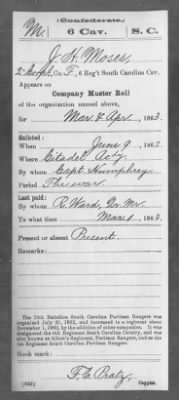 (Confederate.)
M. 6 Cav. S. C.
J. H. Moses,
2 Corpl, Co. F, 6 Reg't South Carolina Cav.
Appears on
Company Muster Roll
of the organization named above,
for Mar & Apr, 1863.
Enlisted:
When June 9, 1862
Where Citadel Acdy
By whom Capt. Humphrey
Period The war.
Last paid:
By whom R. Ward, Q. Mr.
To what time Mar 1, 1863.
Present or absent Present.
Remarks:
The 16th Battalion South Carolina Partisan Rangers was
organized July 21, 1862, and increased to a regiment about
November 1, 1862, by the addition of other companies. It was
designated the 6th Regiment South Carolina Cavalry, and was
also known as Aiken's Regiment, Partisan Rangers, and as the
1st Regiment South Carolina Partisan Rangers.
Book mark:
(642) Copyist.